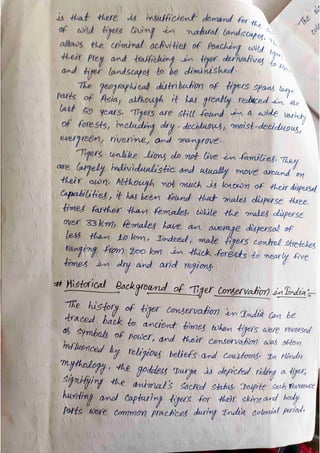 is that there is insufficient demand for the
of wild tigers living in natural landscapes. This
allows the criminal activities of Poaching wild tigers
their Prey and trafficking in tiger derivatives to
and tiger landscapes to be diminished.
The geographical distribution of tigers spans large
Parts of Asia, although it has greatly reduced in the
last 50 years. Tigers are still found in a wide variety
of forests, including dry-deciduous, moist-deciduous,
evergreen, riverine, and mangrove.
Tigers unlike lions do not live in families. They
are largely individualistic and usually move around on
their own. Although not much is known of their dispersal
Capabilities, it has been found that males disperse three
times farther than females. While the males disperse
over 33 km, females have an average dispersal of
less than 10 km. Indeed, male tigers control stretches
ranging from 200 km in thick forests to nearly five
times in dry and arid regions.
# Historical Background of Tiger Conservation in India:-
The history of tiger conservation in India can be
traced back to ancient times when tigers were revered
as symbols of power, and their conservation was often
influenced by religious beliefs and customs. In Hindu
mythology, the goddess Durga is depicted riding a tiger,
signifying the animal's sacred status. Despite such reverence
hunting and capturing tigers for their skins and body
parts were common practices during India colonial period.